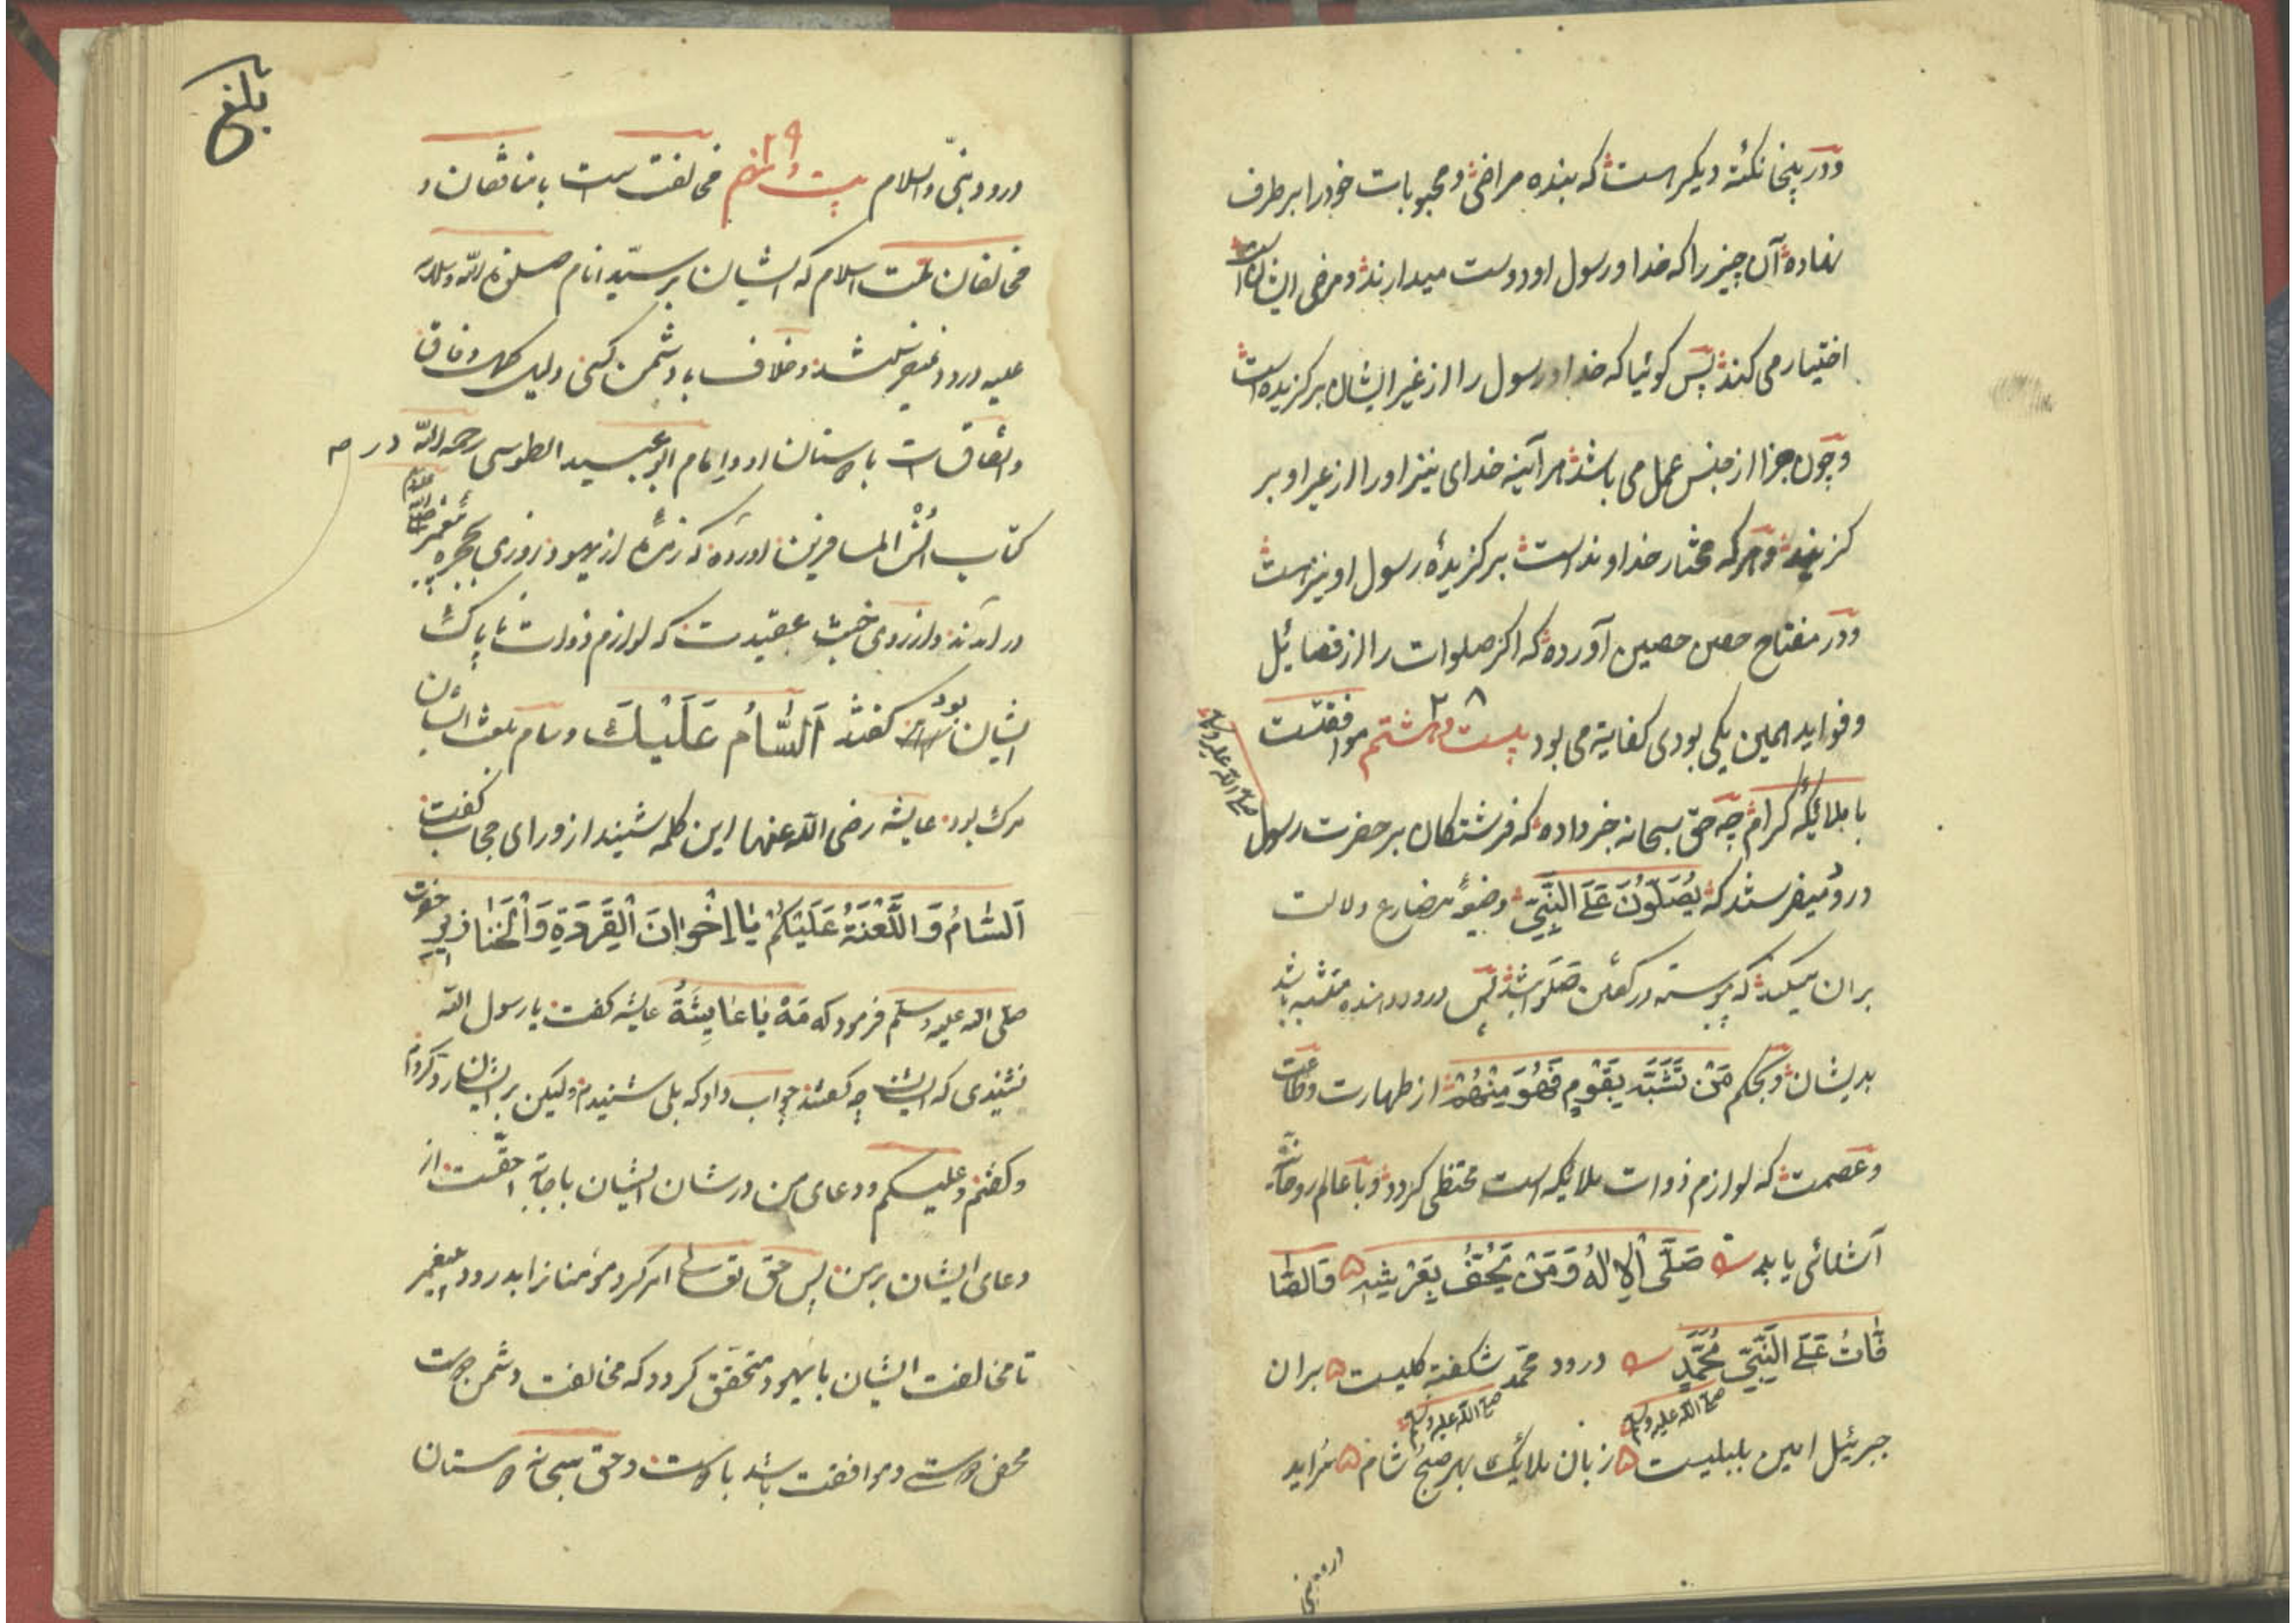 ودر پنجا نکتهٔ دیکر هست که بنده مراضی و محبوبات خود را برطرف
نهاده آن چیز را که خدا و رسول او دوست میدارند و مرضی ایشان است
اختیار می کند پس کوئیا که خدا و رسول را از غیر ایشان برکزیده است
و چون جزا از جنس عمل می باشد هر آینه خدای نیز او را از غیر او بر
کزیند و هر که مختار خداوند است برکزیدهٔ رسول او نیز هست
ودر مفتاح حصن حصین آورده که اکر صلوات را از فضایل
و فواید همین یکی بودی کفایة می بود بیست و هشتم ۲۸ موافقتست
با ملائکهٔ کرام چه حق سبحانه خبر داده که فرشتکان بر حضرت رسول
صلی الله علیه وسلم
درود میفرستند که یُصَلُّونَ عَلَی النَّبِیِّ وضیغهٔ مضارع دلالت
بران میکند که پیوسته در کفتن صَلَوات باشند پس درود دهنده متشبه باشد
بدیشان و بحکم مَنْ تَشَبَّهَ بِقَوْمٍ فَهُوَ مِنْهُمْ از طهارت و طاعت
و عصمت که لوازم ذوات ملائکه است محتظی کردد و با عالم روحانیه
آشنائی یابد صَلَّی الْاِلٰهُ وَمَنْ یَحُفُّ بِعَرْشِهِ ه وَالصَّا
فَّاتُ عَلَی النَّبِیِّ مُحَمَّدٍ درود محمد شکفته کلیست ه بران
صلی الله علیه وسلم صلی الله علیه وسلم
جبرئیل امین بلبلیست ه زبان ملائک بهر صبح و شام ه سراید
درود نبی
بلغ
درود نبی والسلام بیست و نهم ۲۹ مخالفت است با منافقان و
مخالفان ملت اسلام که ایشان بر سید انام صلوة الله وسلامه
علیه درود نمیفرستند و خلاف با دشمن کنی دلیل کمال وفاق
و اتفاق است با دوستان او و امام ابو عبید الطوسی رحمه الله در
کتاب انس المسافرین اورده که زمرهٔ از یهود روزی بحجره پیغمبر
صلی الله علیه
در امدند و از روی خبث عقیدت که لوازم ذوات ناپاک
ایشان بود کفتند اَلسَّامُ عَلَیْكَ و سام بلغت ایشان
مرک بود عایشه رضی الله عنها این کلمه شنید از ورای حجاب کفت
اَلسَّامُ وَاللَّعْنَةُ عَلَیْکُمْ یَا اِخْوَانَ الْقِرَدَةِ وَالْخَنَازِیرِ حضرت
صلی الله علیه وسلم فرمود که مَهْ یَا عَایِشَةُ عایشه کفت یا رسول الله
نشنیدی که ایشان چه کفتند جواب داد که بلی شنیدم ولیکن بر ایشان رد کردم
و کفتم وعلیکم و دعای من در شان ایشان باجابة احقست از
دعای ایشان بر من پس حق تعالی امر کرد مؤمنانرا بدرود پیغمبر
تا مخالفت ایشان با یهود متحقق کردد که مخالفت دشمن دوست
محض دوستی و موافقت باشد با دوست و حق سبحانه دوستان